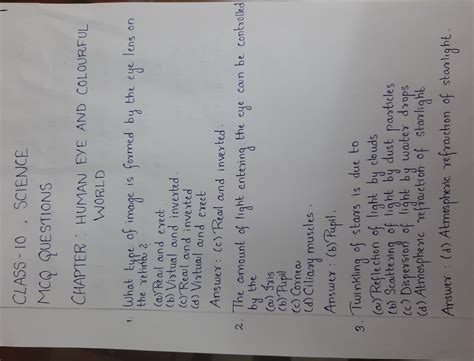 CLASS-10, SCIENCE
MCQ QUESTIONS
CHAPTER: HUMAN EYE AND COLOURFUL
WORLD
1. What type of image is formed by the eye lens on
the retina?
(a) Real and erect
(b) Virtual and inverted.
(c) Real and inverted
(d) Virtual and erect
Answer: (c) Real and inverted.
2. The amount of light entering the eye can be controlled
by the
(a) Iris
(b) Pupil
(c) Cornea
(d) Ciliary muscles.
Answer: (b) Pupil.
3. Twinkling of stars is due to
(a) Reflection of light by clouds
(b) Scattering of light by dust particles
(c) Dispersion of light by water drops
(d) Atmospheric refraction of starlight
Answer: (d) Atmospheric refraction of starlight.